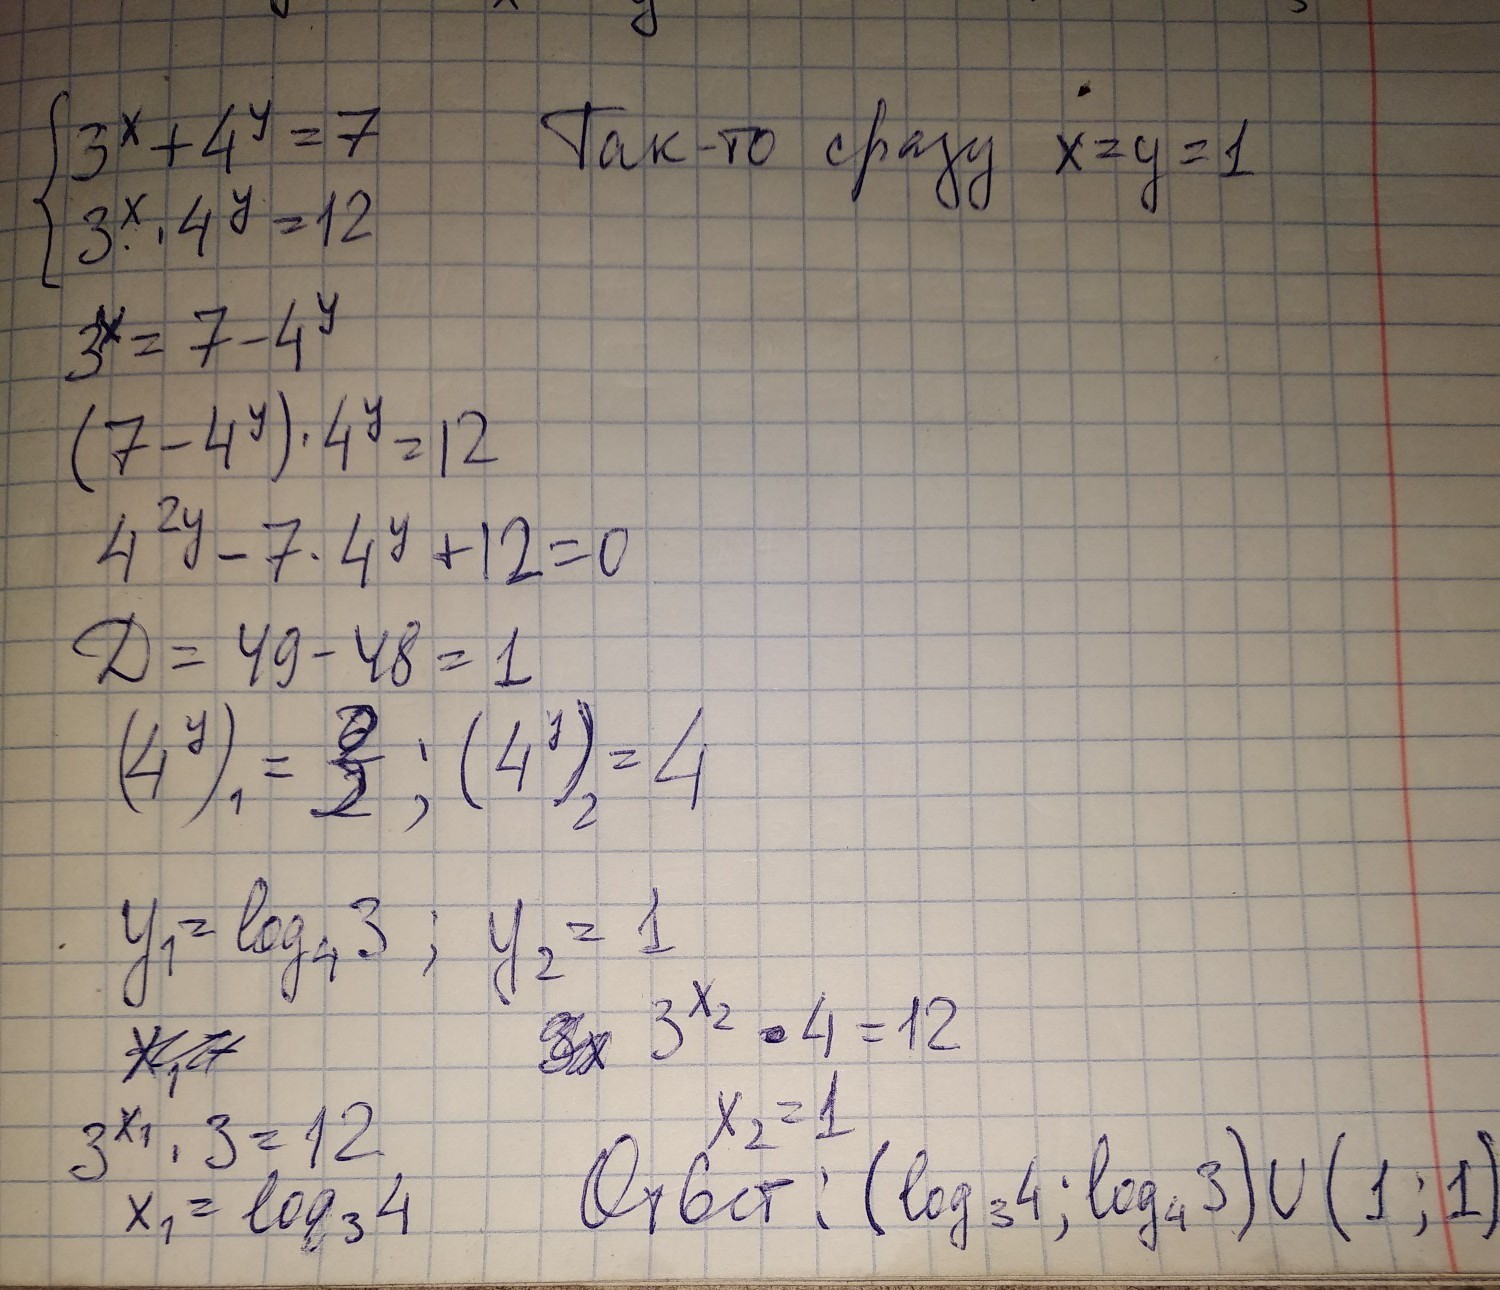 3^x + 4^y = 7 Так-то сразу x = y = 1
3^x · 4^y = 12
3^x = 7 - 4^y
(7 - 4^y) · 4^y = 12
4^2y - 7 · 4^y + 12 = 0
Д = 49 - 48 = 1
(4^y)_1 = ; (4^y)_2 = 4
y_1 = log_4 3 ; y_2 = 1
3^x_2 · 4 = 12
x_2 = 1
3^x_1 · 3 = 12
x_1 = log_3 4
Ответ: (log_3 4; log_4 3) ∪ (1; 1)